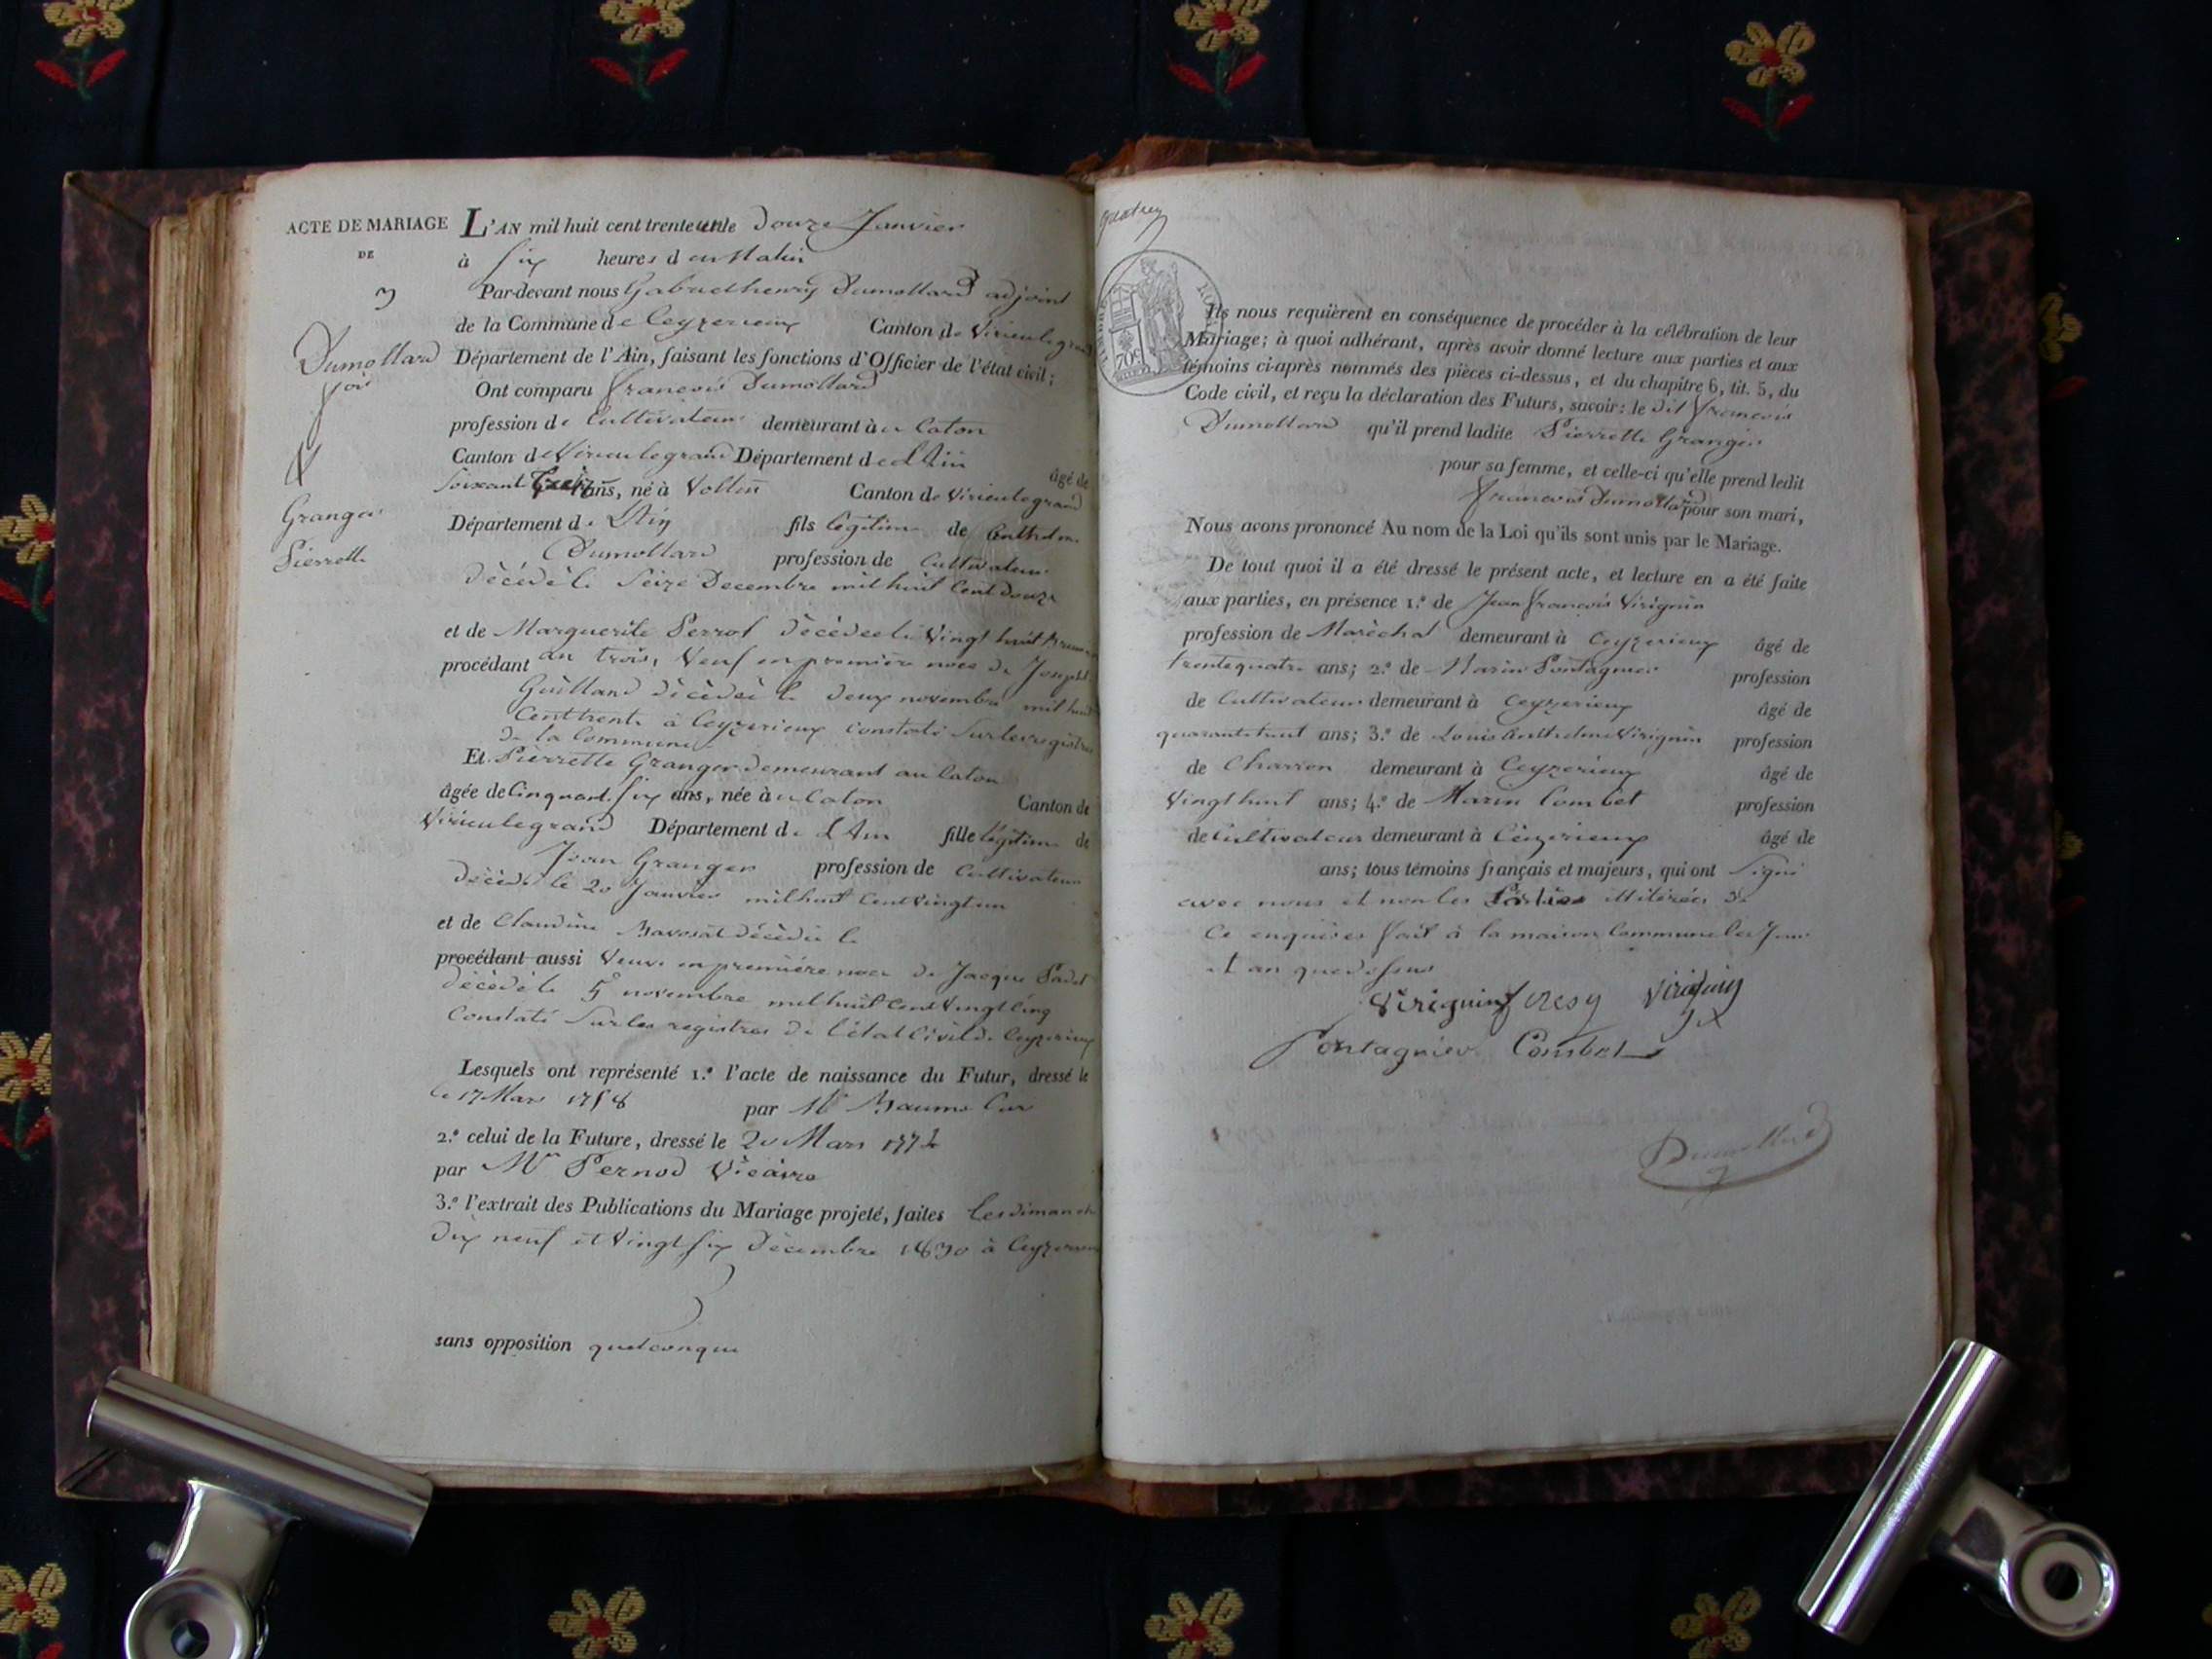 ACTE DE MARIAGE
DE
3
Dumollard
Granger
Pierrette
L'AN mil huit cent trente un le Douze Janvier
à Six heures du Matin
Par-devant nous Gabriel henry Dumollard adjoint
de la Commune de Ceyzerieux Canton de Virieulegrand
Département de l'Ain, faisant les fonctions d'Officier de l'état civil;
Ont comparu francois Dumollard
profession de Cultivateur demeurant à u Caton
Canton de Virieulegrand Département de l'Ain âgé de
Soixante ans, né à Canton de Virieulegrand
Département de l'Ain fils légitime de Anthelme
Dumollard profession de Cultivateur
décédé le Seize Decembre mil huit Cent Douze
et de Marguerite Perrot décédée le Vingt huit
procédant an trois, Veuf en première noce de Joseph
Guilland décédé le deux novembre mil huit
Cent trente à Ceyzerieux constaté Sur les registres
de la Commune
Et Pierrette Granger demeurant au Caton
âgée de Cinquante Six ans, née à u Caton Canton de
Virieulegrand Département de l'Ain fille légitime de
Jean Granger profession de Cultivateur
décédé le 20 Janvier mil huit Cent Vingt un
et de Claudine décédée le
procédant aussi Veuve en première noce de Jacque
décédé le 5 novembre mil huit Cent Vingt Cinq
Constaté Sur les registres de l'état Civil de Ceyzerieux
Lesquels ont représenté 1.º l'acte de naissance du Futur, dressé le
le 17 Mars 1758 par Mr
2.º celui de la Future, dressé le 20 Mars 1774
par Mr Pernod Vicaire
3.º l'extrait des Publications du Mariage projeté, faites Les dimanche
Dix neuf et Vingt Six Décembre 1830 à Ceyzerieux
sans opposition quelconque
TIMBRE ROYAL
70c
Ils nous requièrent en conséquence de procéder à la célébration de leur
Mariage; à quoi adhérant, après avoir donné lecture aux parties et aux
témoins ci-après nommés des pièces ci-dessus, et du chapitre 6, tit. 5, du
Code civil, et reçu la déclaration des Futurs, savoir: le dit francois
Dumollard qu'il prend ladite Pierrette Granger
pour sa femme, et celle-ci qu'elle prend ledit
francois Dumollard pour son mari,
Nous avons prononcé Au nom de la Loi qu'ils sont unis par le Mariage.
De tout quoi il a été dressé le présent acte, et lecture en a été faite
aux parties, en présence 1.º de Jean francois Viriguin
profession de Maréchal demeurant à Ceyzerieux âgé de
trente quatre ans; 2.º de Marin Pontagnier profession
de Cultivateur demeurant à Ceyzerieux âgé de
quarante huit ans; 3.º de Louis Anthelme Viriguin profession
de Charron demeurant à Ceyzerieux âgé de
Vingt huit ans; 4.º de Marin Combet profession
de Cultivateur demeurant à Ceyzerieux âgé de
ans; tous témoins français et majeurs, qui ont Signé
avec nous et non les Parties illitérées de
Ce enquises fait à la maison Commune les Jour
et an que dessus
Viriguin Viriguin
Pontagnier Combet
Dumollard